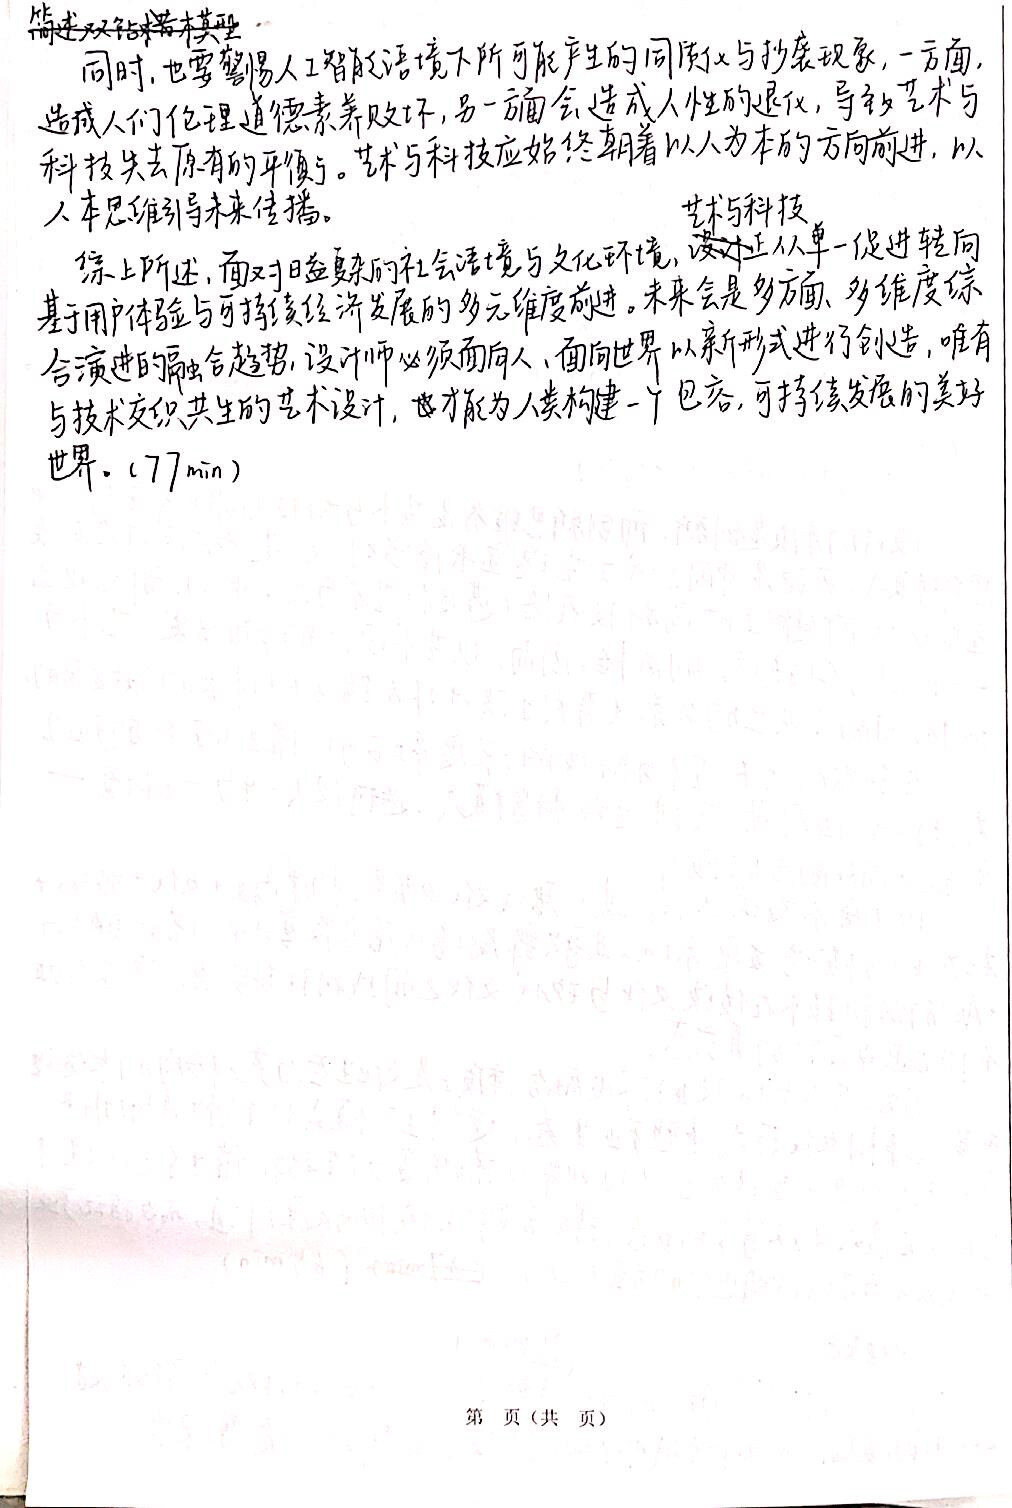 简述双钻模型
同时,也要警惕人工智能语境下所可能产生的同质化与抄袭现象,一方面,
造成人们伦理道德素养败坏,另一方面会造成人性的退化,导致艺术与
科技失去原有的平衡。艺术与科技应始终朝着以人为本的方向前进,以
人本思维引导未来传播。
艺术与科技
综上所述,面对日益复杂的社会语境与文化环境,设计正从单一促进转向
基于用户体验与可持续经济发展的多元维度前进。未来会是多方面、多维度综
合演进的融合趋势,设计师必须面向人、面向世界以新形式进行创造,唯有
与技术交织共生的艺术设计,才能为人类构建一个包容,可持续发展的美好
世界。(77min)
第 页(共 页)